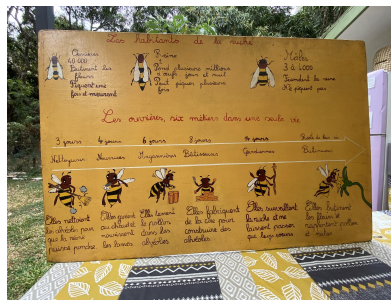 Les habitants de la ruche
Ouvrières
40 000
Butinent les
fleurs
Piquent une
fois et meurent
Reine
1
Pond plusieurs millions
d'œufs jour et nuit
Peut piquer plusieurs
fois
Mâles
3 à 4000
Fécondent la reine
Ne piquent pas
Les ouvrières, six métiers dans une seule vie
3 jours
4 jours
6 jours
8 jours
Nettoyeuses
Nourrices
Magasinières
Bâtisseuses
Gardiennes
Butineuses
Elles nettoient
les alvéoles pour
que la reine
puisse pondre
Elles
au chaud et
nourrissent
les larves
Elles
le pollen
dans les
alvéoles
Elles fabriquent
de la cire pour
construire des
alvéoles
Elles surveillent
la ruche et ne
laissent passer
que leurs sœurs
Elles butinent
les fleurs et
rapportent pollen
et nectar